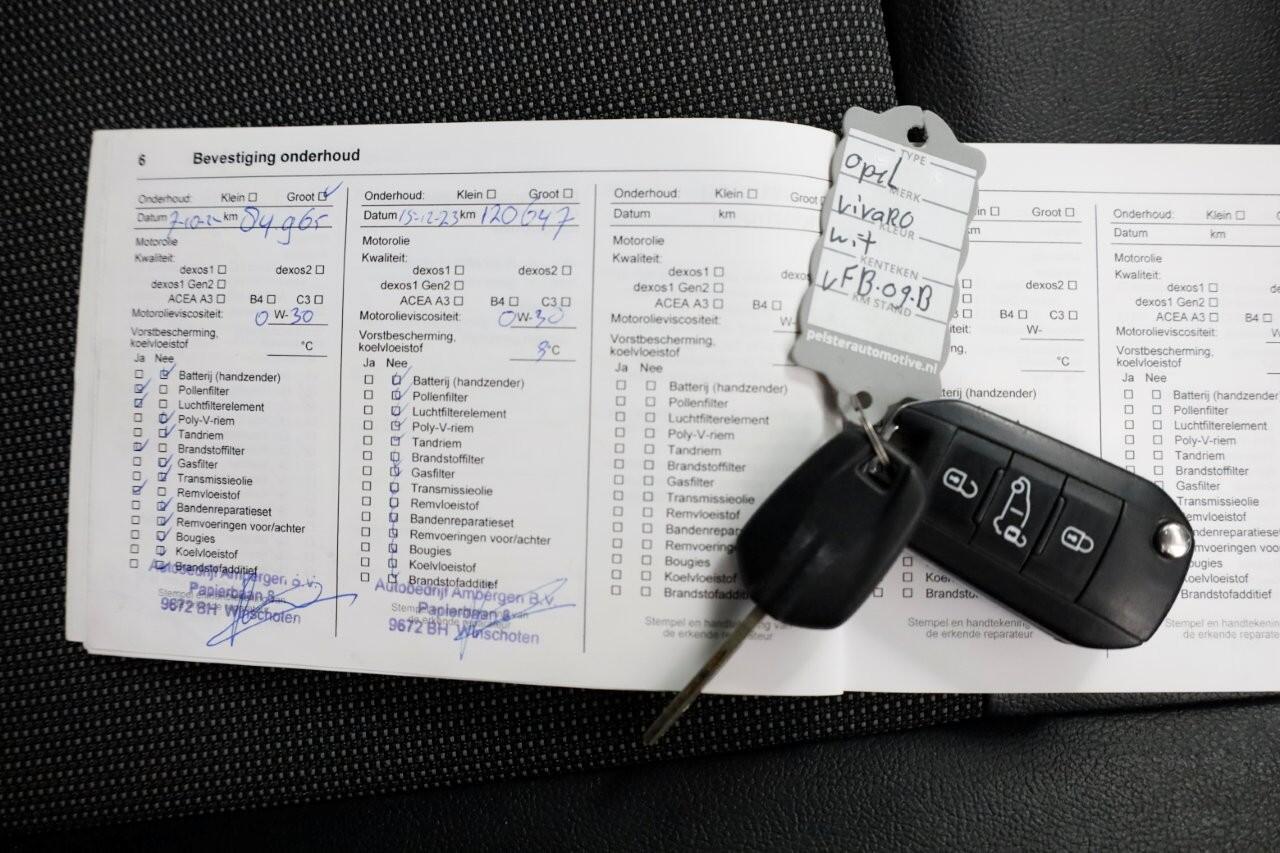 6 Bevestiging onderhoud
Onderhoud: Klein Groot
Datum km 84.965
Motorolie
Kwaliteit:
dexos1 dexos2
dexos1 Gen2
ACEA A3 B4 C3
Motorolieviscositeit: 0W-30
Vorstbescherming,
koelvloeistof °C
Ja Nee
Batterij (handzender)
Pollenfilter
Luchtfilterelement
Poly-V-riem
Tandriem
Brandstoffilter
Gasfilter
Transmissieolie
Remvloeistof
Bandenreparatieset
Remvoeringen voor/achter
Bougies
Koelvloeistof
Brandstofadditief
Autobedrijf Ambergen B.V.
Papierbaan 8
9672 BH Winschoten
Onderhoud: Klein Groot
Datum 15-12-23 km 120647
Motorolie
Kwaliteit:
dexos1 dexos2
dexos1 Gen2
ACEA A3 B4 C3
Motorolieviscositeit: 0W-30
Vorstbescherming,
koelvloeistof °C
Ja Nee
Batterij (handzender)
Pollenfilter
Luchtfilterelement
Poly-V-riem
Tandriem
Brandstoffilter
Gasfilter
Transmissieolie
Remvloeistof
Bandenreparatieset
Remvoeringen voor/achter
Bougies
Koelvloeistof
Brandstofadditief
Autobedrijf Ambergen B.V.
Papierbaan 8
9672 BH Winschoten
Onderhoud: Klein Groot
Datum km
Motorolie
Kwaliteit:
dexos1 dexos
dexos1 Gen2
ACEA A3 B4
Motorolieviscositeit: W-
Vorstbescherming,
koelvloeistof
Ja Nee
Batterij (handzender)
Pollenfilter
Luchtfilterelement
Poly-V-riem
Tandriem
Brandstoffilter
Gasfilter
Transmissieolie
Remvloeistof
Bandenrepar
Remvoering
Bougies
Koelvloeistof
Brandstofadditi
Stempel en handtekening van
de erkende reparateur
TYPE
Opel
MERK
VivaRO
KLEUR
wit
KENTEKEN
VFB.09.B
KM STAND
pelsterautomotive.nl
in Groot
km
dexos2
B4 C3
teit: W-
ng,
°C
Koel
Brandsto
Stempel en handtekening
de erkende reparateur
Onderhoud: Klein
Datum km
Motorolie
Kwaliteit:
dexos1
dexos1 Gen2
ACEA A3 B4
Motorolieviscositeit:
Vorstbescherming,
koelvloeistof
Ja Nee
Batterij (handzender
Pollenfilter
Luchtfilterelement
Poly-V-riem
Tandriem
Brandstoffilter
Gasfilter
Transmissieolie
emvloeistof
ndenreparatieset
mvoeringen voor/achter
ugies
Koelvloeistof
Brandstofadditief
Stempel en handtekening
de erkende reparateur